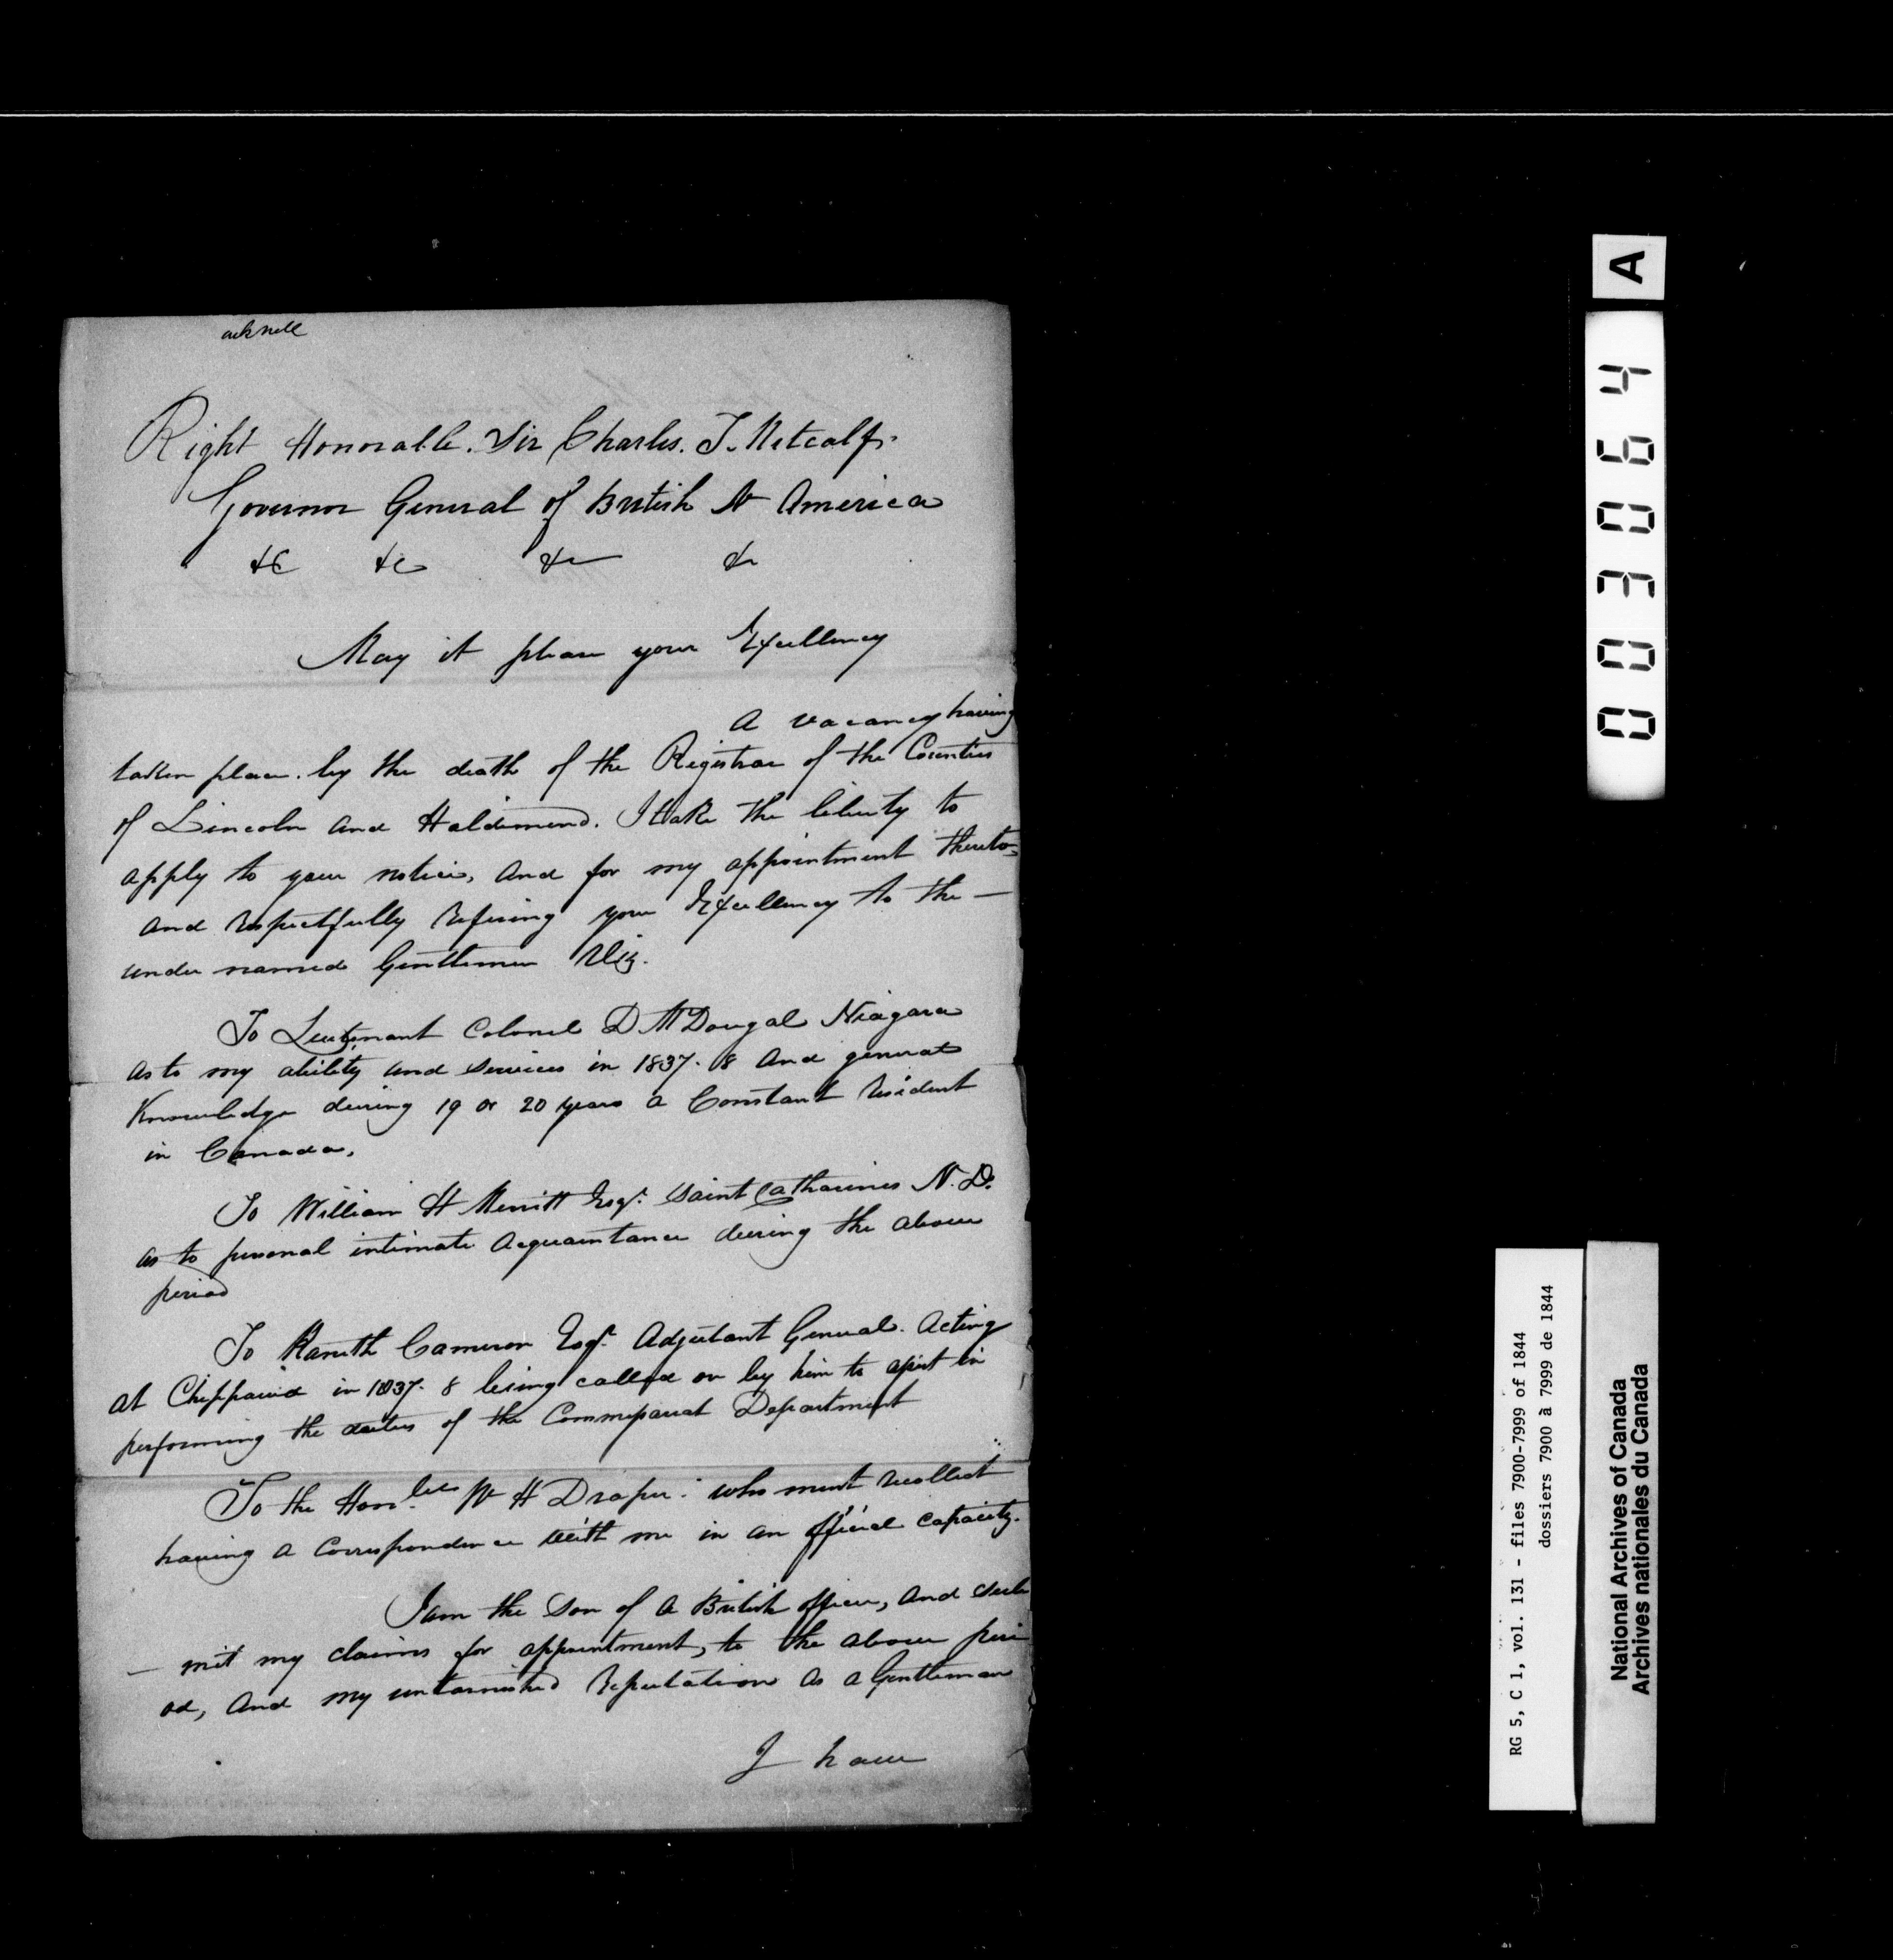 ackndd
Right Honorable. Sir Charles. T. Metcalf.
Governor General of British N America
&c &c &c &c
May it please your Excellency
A vacancy having
taken place. by the death of the Registrar of the Counties
of Lincoln and Haldimend. I take the liberty to
apply to your notice, and for my appointment thereto
and respectfully refering your Excellency to the —
under named Gentlemen Viz.
To Leutenant Colonel D McDougal Niagara
as to my ability and services in 1837. 8 and general
Knowledge during 19 or 20 years a Constant resident
in Canada,
To William H Merritt Esqr. Saint Catharines N. D.
as to personal intimate acquaintance during the above
period
To Kaneth Cameron Esqr. Adjutant General. acting
at Chippawa in 1837. 8 being called on by him to assist in
performing the duties of the Commissariat Department
To the Honble W H Draper. who must recollect
having a Correspondence with me in an official capacity.
I am the Son of a British officer, and sub
— mit my claims for appointment, to the above peri
od, and my untarnished reputation as a Gentleman
I have
A
003064
RG 5, C 1, vol. 131 - files 7900-7999 of 1844
dossiers 7900 à 7999 de 1844
National Archives of Canada
Archives nationales du Canada